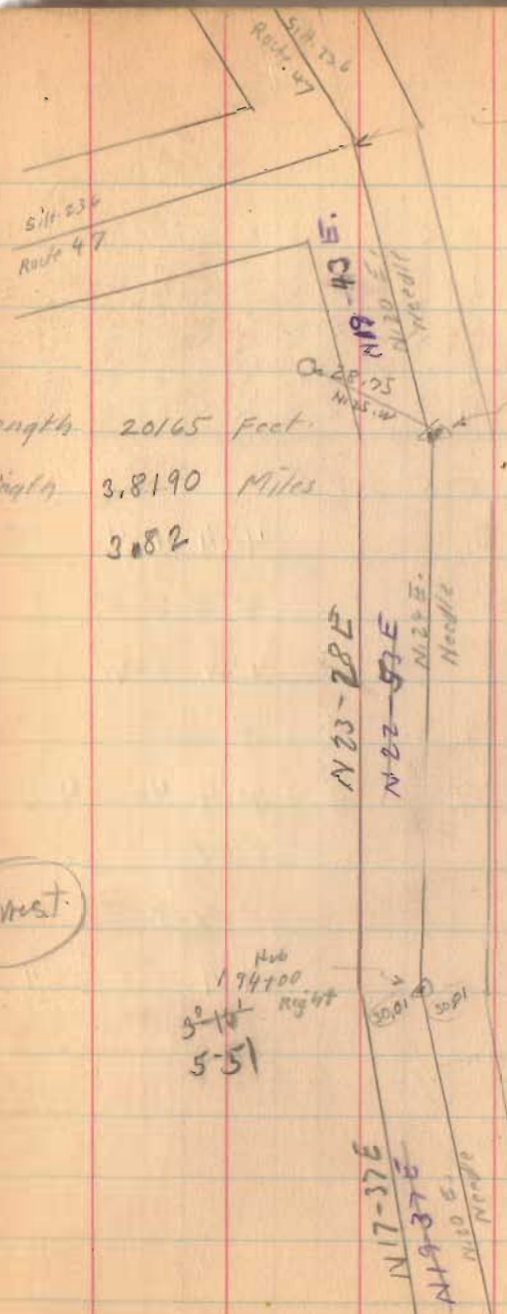 S.H. 236
Route 47
S.H. 236
Route 47
N19-43 E.
N.20 E.
Needle
28.75
N.25.W
ength 20165 Feet.
3.8190 Miles
3.82
N23-28E
N22-53E
N.24 E.
Needle
Hub
194+00
Right
50.01
50.01
5-51
N17-37E
N19-37E
N.20 E.
Needle